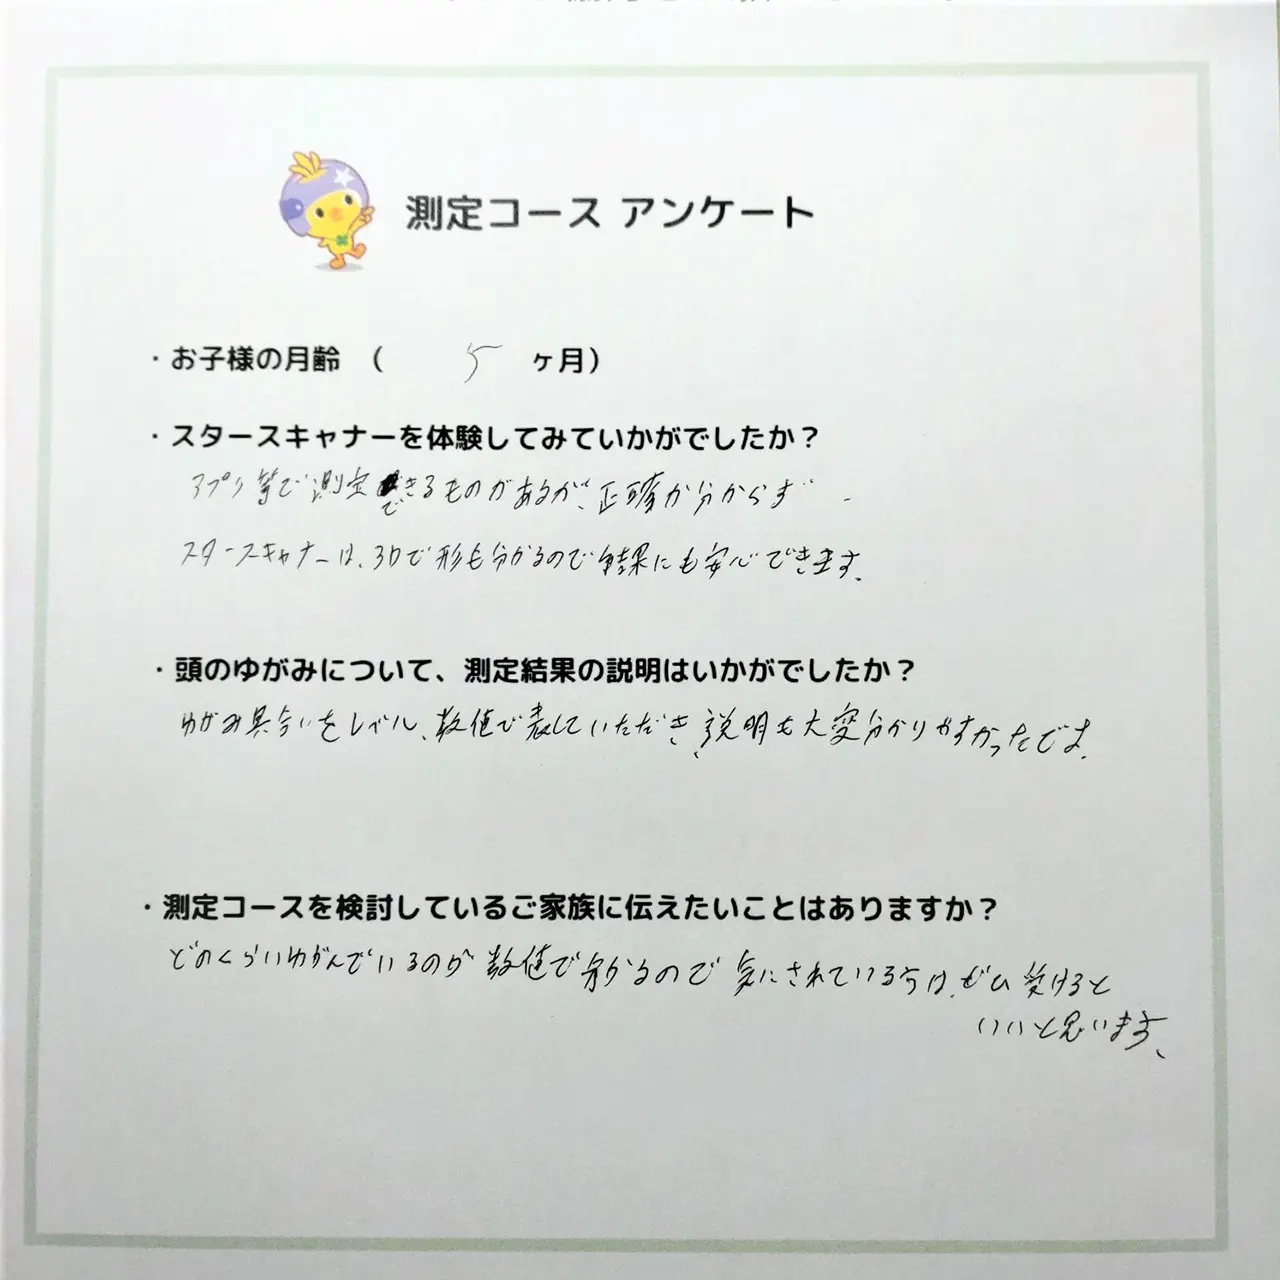 測定コース アンケート
・お子様の月齢 ( 5 ヶ月)
・スタースキャナーを体験してみていかがでしたか?
アプリ等で測定できるものがあるが、正確か分からず
スタースキャナーは、3Dで形も分かるので結果にも安心できます。
・頭のゆがみについて、測定結果の説明はいかがでしたか?
ゆがみ具合いをレベル、数値で表していただき、説明も大変分かりやすかったです。
・測定コースを検討しているご家族に伝えたいことはありますか?
どのくらいゆがんでいるのか数値で分かるので気にされている方は、ぜひ受けると
いいと思います。